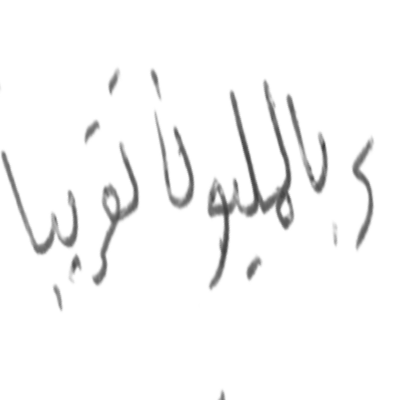 و بالمليون تقريبا